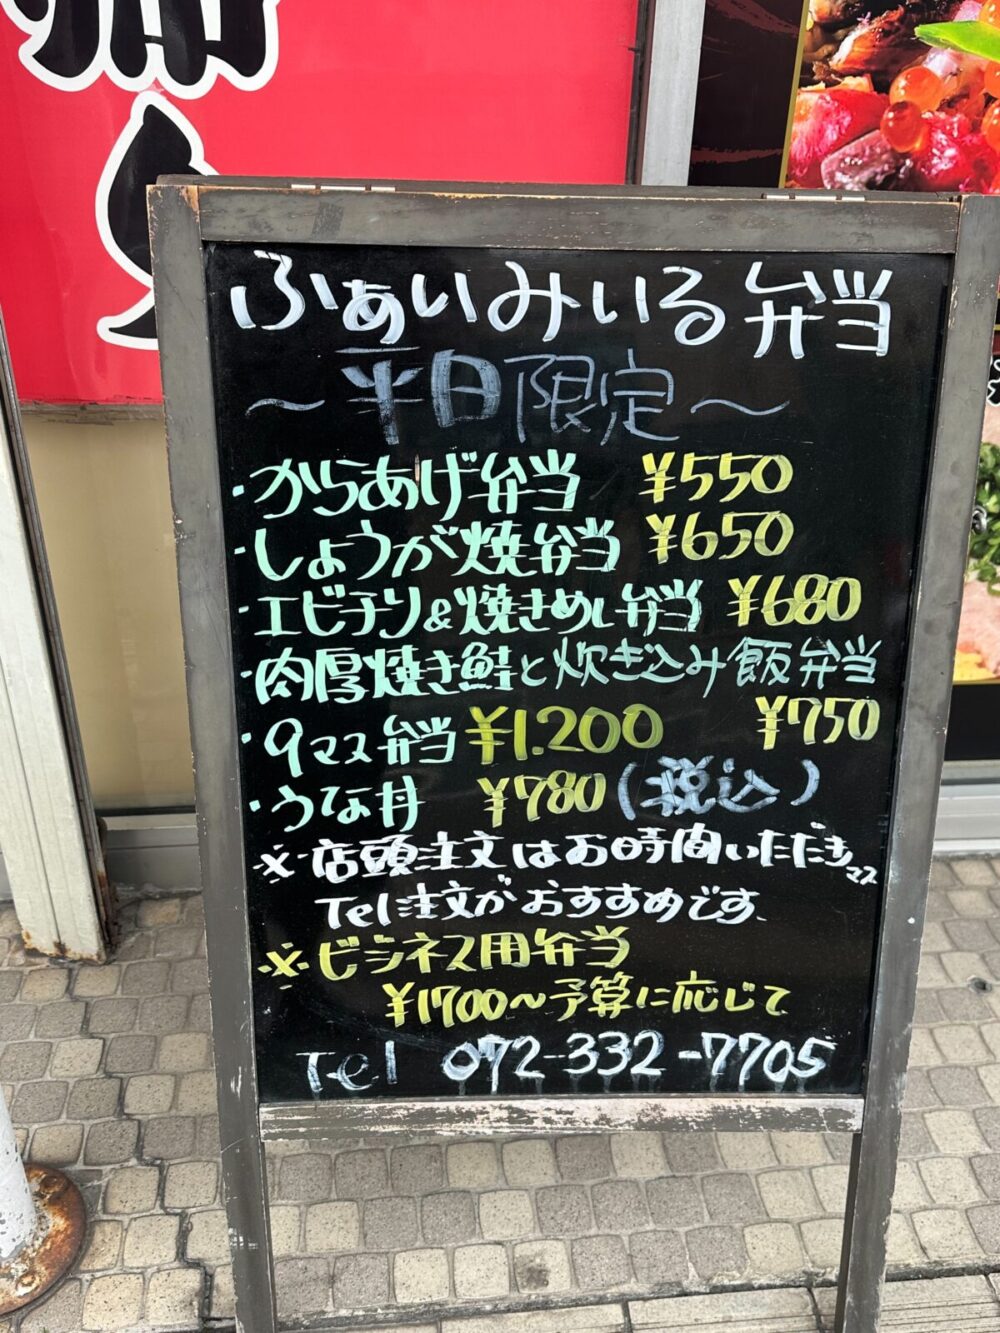 ふぁいみいる弁当
～平日限定～
・からあげ弁当 ¥550
・しょうが焼弁当 ¥650
・エビチリ&焼きめし弁当 ¥680
・肉厚焼き鮭と炊き込み飯弁当
¥750
・9マス弁当 ¥1.200
・うな丼 ¥780(税込)
※店頭注文はお時間いただきマス
Tel注文がおすすめです
※ビジネス用弁当
¥1700～予算に応じて
Tel 072-332-7705